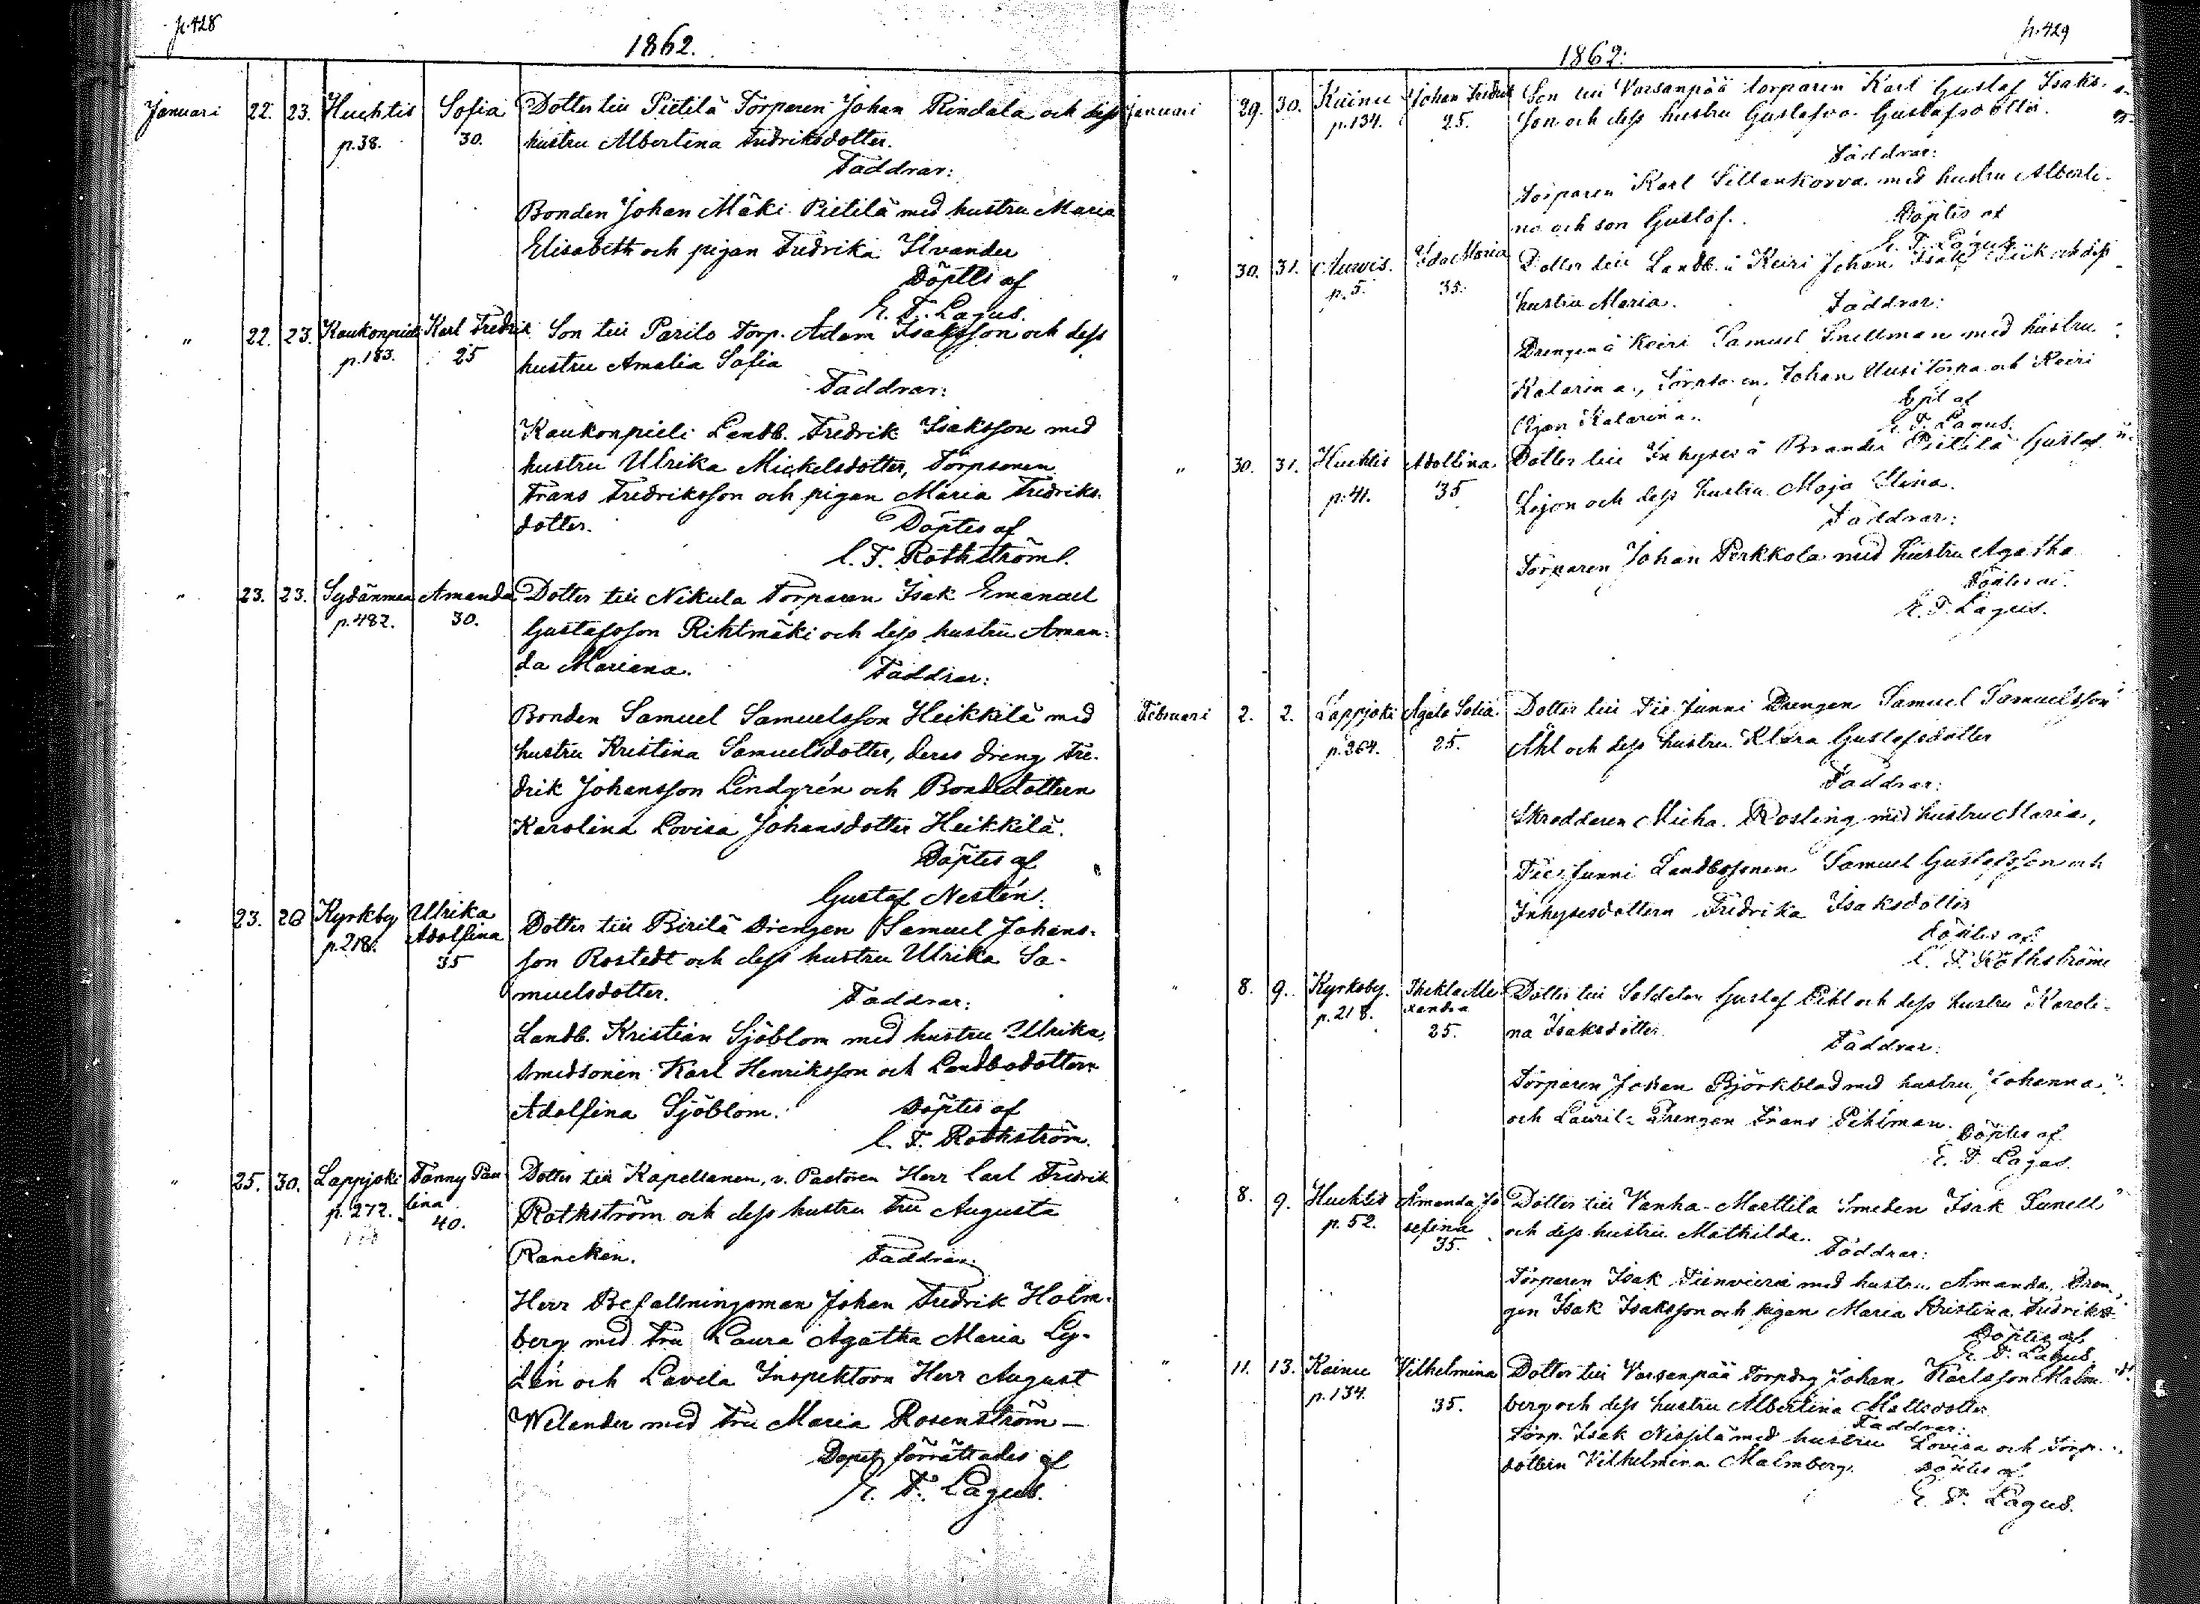 p. 428
1862.
Januari 22. 23. Huchtis Sofia Dotter till Pietilä Torparen Johan Rindala och dess
p. 38. 30. hustru Albertina Fredriksdotter.
Faddrar:
Bonden Johan Mäki Pietilä med hustru Maria
Elisabeth och pigan Fredrika Ilvander
Döptes af
E. F. Lagus.
" 22. 23. Kaukonpieli Karl Fredrik Son till Parilo Torp. Adam Isaksson och dess
p. 183. 25 hustru Amalia Sofia
Faddrar:
Kaukonpieli Landb. Fredrik Isaksson med
hustru Ulrika Mickelsdotter, Torpsonen
Frans Fredriksson och pigan Maria Fredriks-
dotter. Döptes af
C. F. Rothström.
" 23. 23. Sydänmaa Amanda Dotter till Nikula Torparen Isak Emanuel
p. 482. 30. Gustafsson Rihtmäki och dess hustru Aman-
da Mariana. Faddrar:
Bonden Samuel Samuelsson Heikkilä med
hustru Kristina Samuelsdotter, deras dreng Fre-
drik Johansson Lindgrén och Bondedottern
Karolina Lovisa Johansdotter Heikkilä.
Döptes af
Gustaf Nestén.
" 23. Kyrkby Ulrika
p. 218. Adolfina Dotter till Birilä Drengen Samuel Johans-
35 son Rostedt och dess hustru Ulrika Sa-
muelsdotter. Faddrar:
Landb. Kristian Sjöblom med hustru Ulrika,
Smedsonen Karl Henriksson och Landbodottern
Adolfina Sjöblom. Döptes af
C. F. Rothström.
" 25. 30. Lappjoki Fanny Pau- Dotter till Kapellanen, v. Pastoren Herr Carl Fredrik
p. 272. lina Rothström och dess hustru Fru Augusta
40. Rancken. Faddrar:
Herr Befallningsman Johan Fredrik Holm-
berg med Fru Laura Agatha Maria Ly-
dén och Lavila Inspektorn Herr August
Welander med Fru Maria Rosenström —
Dopet förrättades af
E. F. Lagus.
p. 429
1862.
Januari 29. 30. Kuinu Johan Fredrik Son till Varsanpää torparen Karl Gustaf Isaks-
p. 134. 25. son och dess hustru Gustafva Gustafsdotter.
Faddrar:
Torparen Karl Sillankorva med hustru Alberti-
na och son Gustaf. Döptes af
E. F. Lagus.
" 30. 31. Auvis. Ida Maria Dotter till Landb. å Keiri Johan Isak och dess
p. 5. 35. hustru Maria. Faddrar:
Drengen å Keiri Samuel Snellman med hustru
Katarina, Johan Uusitorpa och Keiri
Pigan Katarina. Döpt af
E. F. Lagus.
" 30. 31. Huchtis Adolfina Dotter till Inhyses å Brander Pietilä Gustaf
p. 41. 35 Lejon och dess hustru Maja Stina.
Faddrar:
Torparen Johan Perkkola med hustru Agatha
Döptes af
E. F. Lagus.
Februari 2. 2. Lappjoki Agata Sofia Dotter till Junni Drengen Samuel Samuelsson
p. 264. 25. Ahl och dess hustru Klara Gustafsdotter
Faddrar:
Skreddaren Micha. Rosling med hustru Maria,
Junni Landbosonen Samuel Gustafsson och
Inhysesdottern Fredrika Isaksdotter
Döptes af
C. F. Rothström
" 8. 9. Kyrkoby. Thekla Ale- Dotter till Soldaten Gustaf Pihl och dess hustru Karoli-
p. 218. xandra
25. na Isaksdotter.
Faddrar:
Torparen Johan Björkblad med hustru Johanna
och Lauril- Drengen Frans Pihlman. Döptes af
E. F. Lagus.
" 8. 9. Huchtis Amanda Jo- Dotter till Vanha-Marttila Smeden Isak Lunell
p. 52. sefina och dess hustru Mathilda.
35. Faddrar:
Torparen Isak Tienvieri med hustru Amanda, Dren-
gen Isak Isaksson och pigan Maria Kristina Fredriksd.
Döptes af
E. F. Lagus.
" 11. 13. Kuinu Vilhelmina Dotter till Varsanpää Torpdrg Johan Karlsson Malm-
p. 134. 35. berg och dess hustru Albertina Mattsdotter
Faddrar:
Torp. Isak Nissilä med hustru Lovisa och Torp-
dottern Vilhelmina Malmberg. Döptes af
E. F. Lagus.